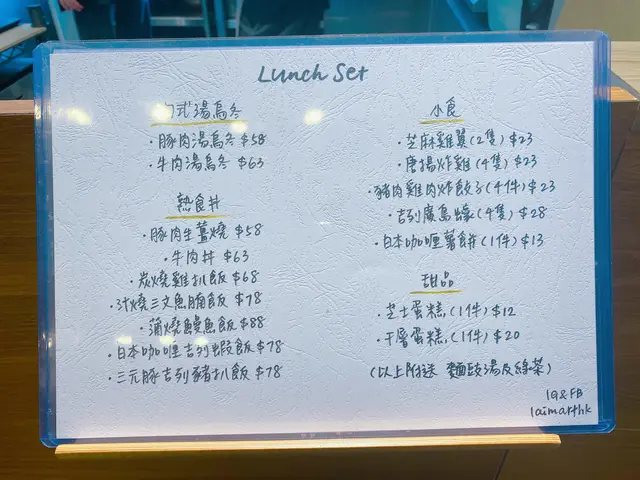 Lunch Set
式湯烏冬
・豚肉湯烏冬 $58
・牛肉湯烏冬 $63
熱食丼
・豚肉生薑燒 $58
・牛肉丼 $63
・炭燒雞扒飯 $68
・汁燒三文魚腩飯 $78
・蒲燒鰻魚飯 $88
・日本咖喱吉列蝦飯 $78
・三元豚吉列豬扒飯 $78
小食
・芝麻雞翼(2隻) $23
・唐揚炸雞(4隻) $23
豬肉雞肉炸餃子(4件) $23
・吉列廣島蠔(4隻) $28
・日本咖喱薯餅(1件) $13
甜品
・芝士蛋糕(1件) $12
・千層蛋糕(1件) $20
(以上附送 麵豉湯及綠菜)
IG & FB
laimarthk